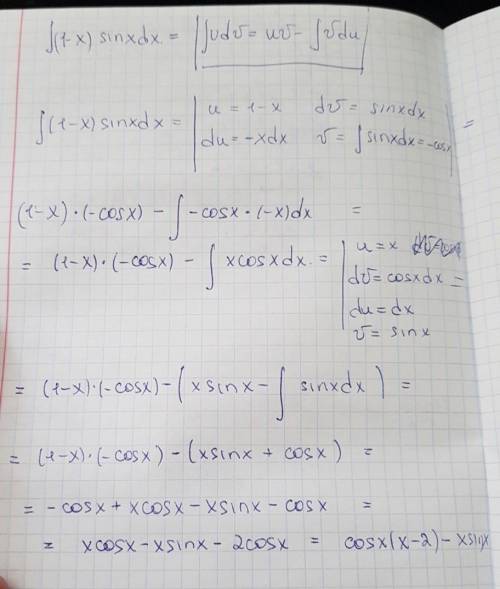 ∫(1-x) sinxdx = |∫udv = uv - ∫vdu|
∫(1-x) sinxdx = | u = 1-x dv = sinxdx
du = -xdx v = ∫sinxdx = -cosx | =
(1-x)·(-cosx) - ∫-cosx·(-x)dx =
= (1-x)·(-cosx) - ∫ xcosxdx = | u = x
dv = cosxdx =
du = dx
v = sinx
= (1-x)·(-cosx) - (xsinx - ∫ sinxdx) =
= (1-x)·(-cosx) - (xsinx + cosx) =
= -cosx + xcosx - xsinx - cosx =
= xcosx - xsinx - 2cosx = cosx(x-2) - xsinx